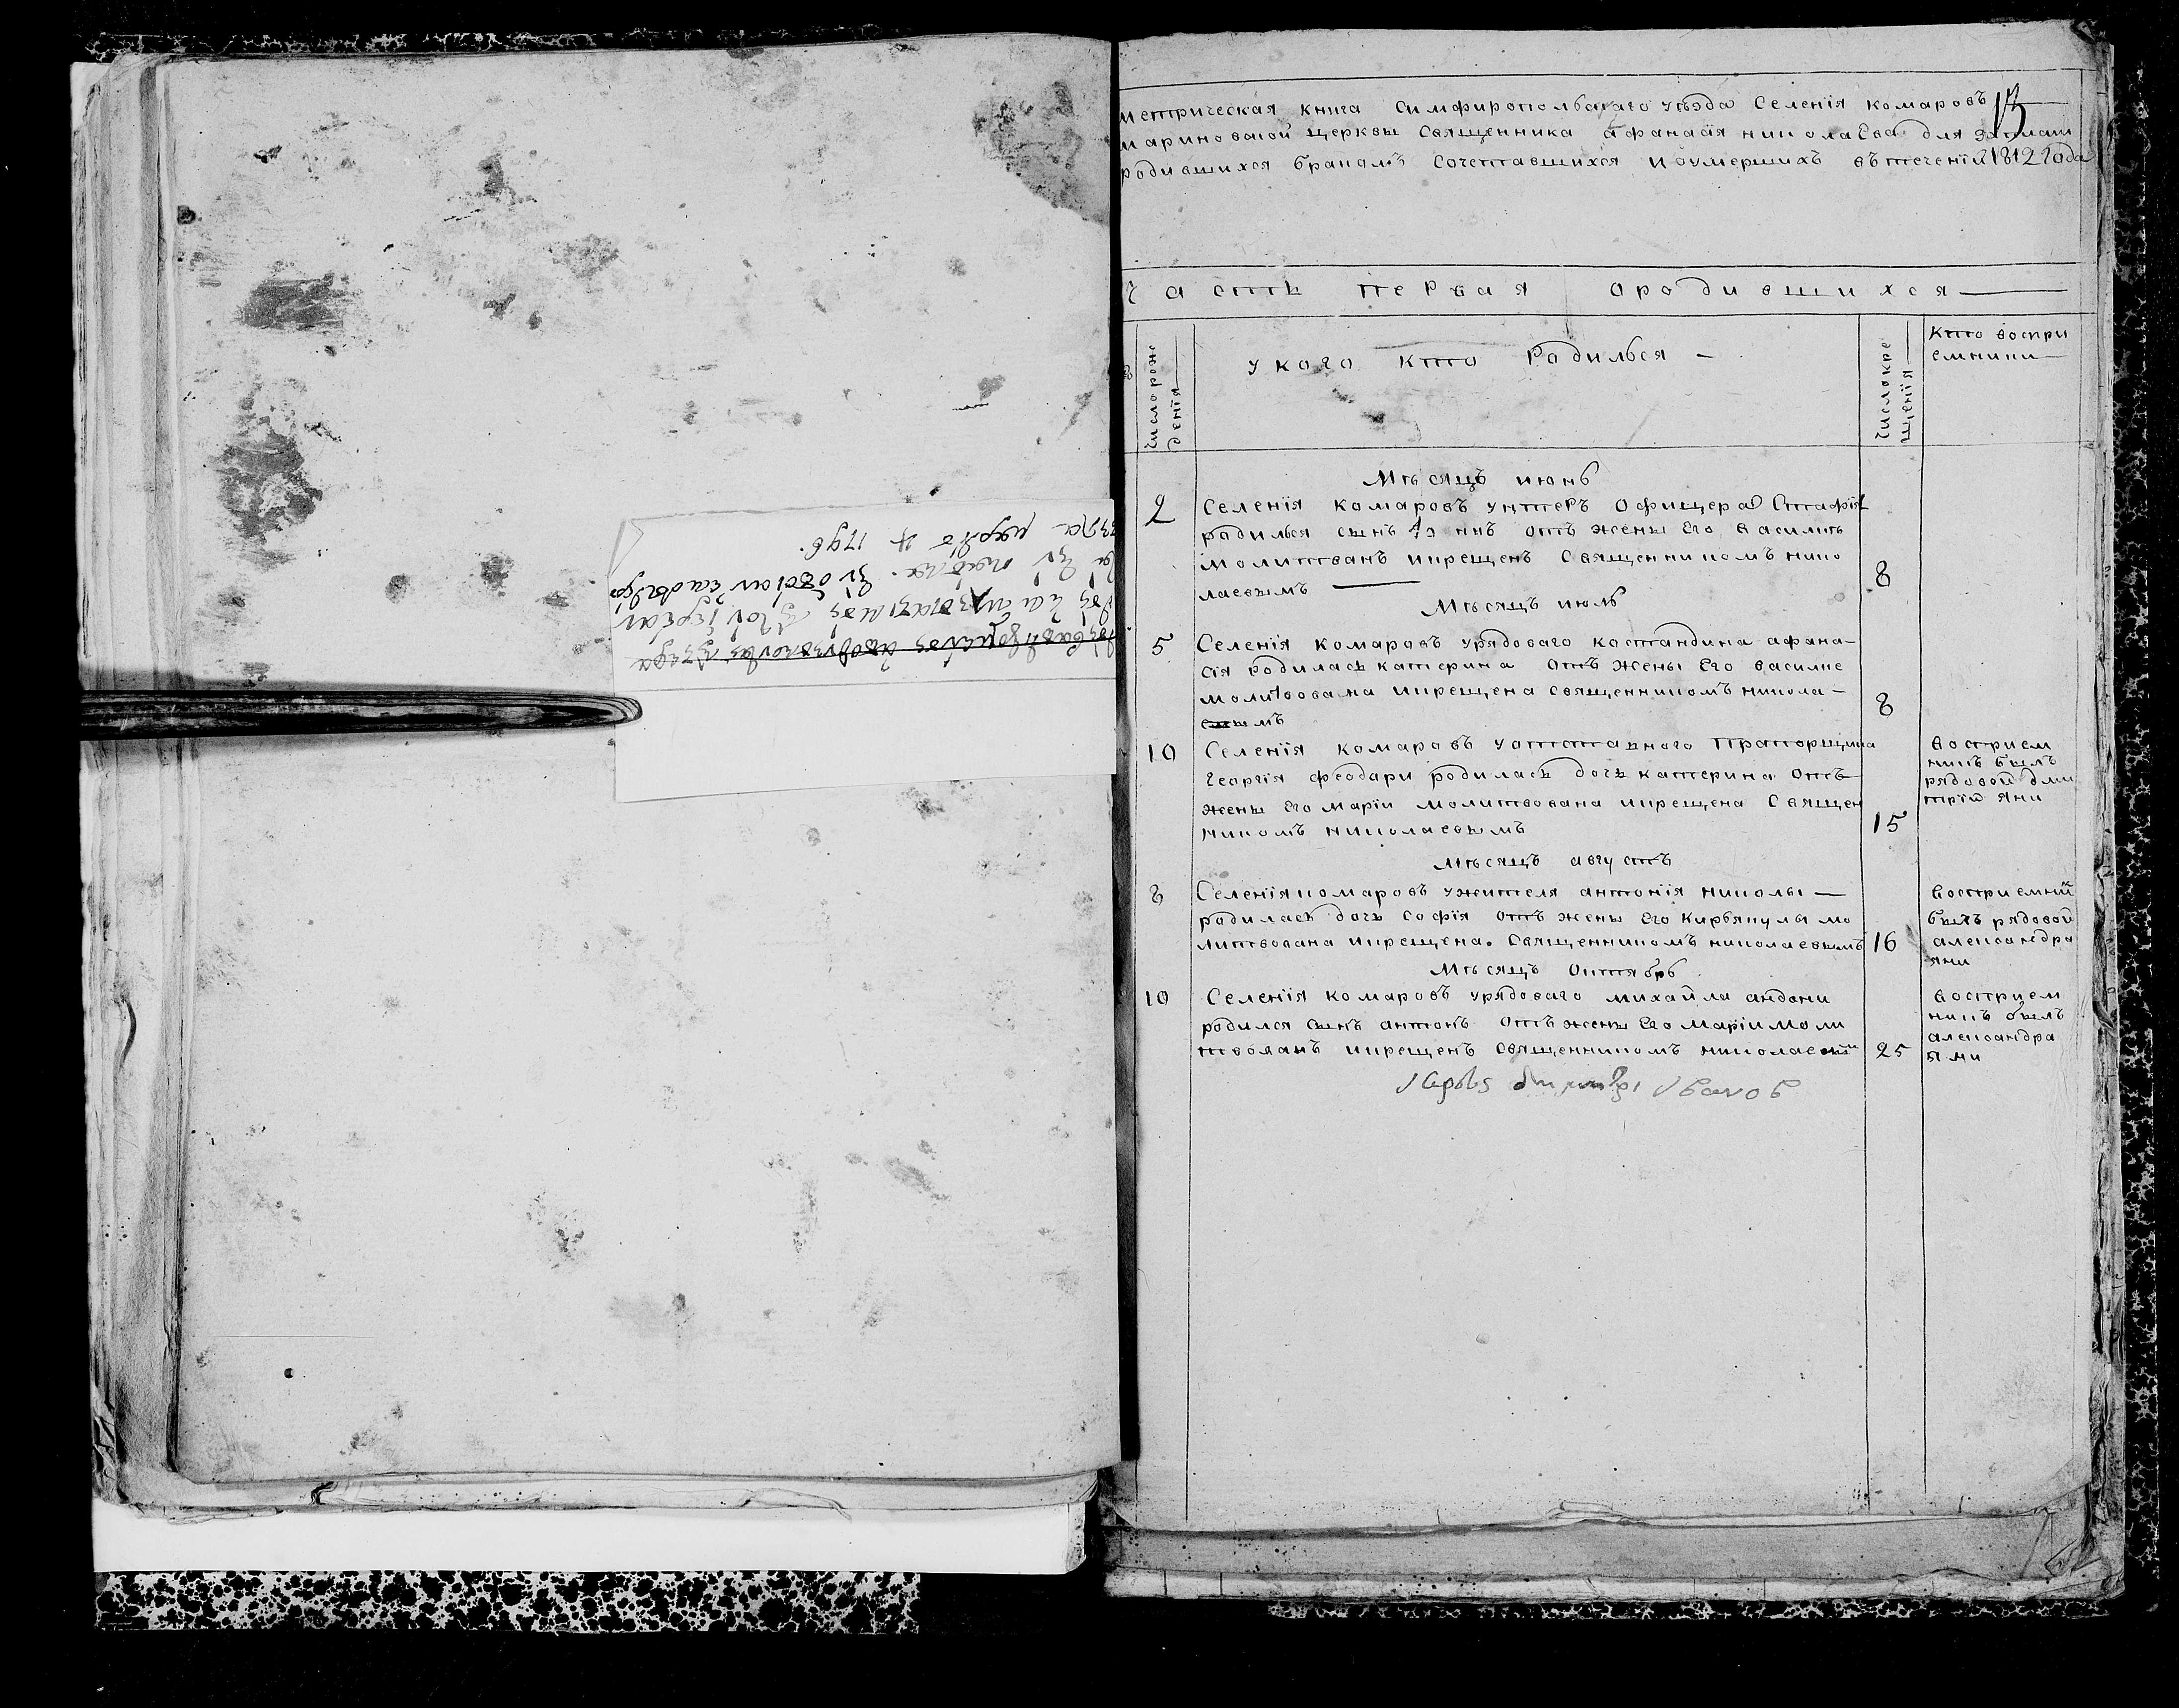 1796.
13
метрическая книга Симфиропольскаго уѣзда Селенїя комаровъ
мариновской церквы Священника афанасїя николаева для записи
родившихся браномъ Сочетавшихся иоумершихъ втеченїи 1812 года
Часть первая ородившихся
число рож
денїя
у кого кто Родилься
число кре
щенїя
Кто воспри
емники
Мѣсяцъ июнь
2
Селенїя комаровъ унтеръ Офицера Стафїя
радилься сынъ отъ жены Его василиь
молитванъ икрещенъ Священникомъ нико
лаевымъ
8
Мѣсяцъ июль
5
Селенїя комаровъ урядоваго костандина афана–
сїя родилась катерина отъ жены Его василие
молитвована икрещена священникомъ никола–
евымъ
8
10
Селенїя комаровъ уотставного Прапорщика
Георгїя феодари родилась дочь катерина отъ
жены Его марїи молитвована икрещена Священ
никомъ николаевымъ
15
восприем
никъ былъ
рядовой дми
трїй яни
мѣсяцъ августъ
8
Селенїя комаровъ ужителя антонїя николы —
радилась дочь Софїя отъ жены Его Кирьякулы мо
литвована икрещена. Священникомъ николаевымъ
16
восприемни
былъ рядовой
александра
яни
Мѣсяцъ октябрь
10
Селенїя комаровъ урядоваго михайла андони
родился сынъ антонъ отъ жены Его марїи моли
твованъ икрещенъ священникомъ николаевым
25
восприем
никъ былъ
александра
яни